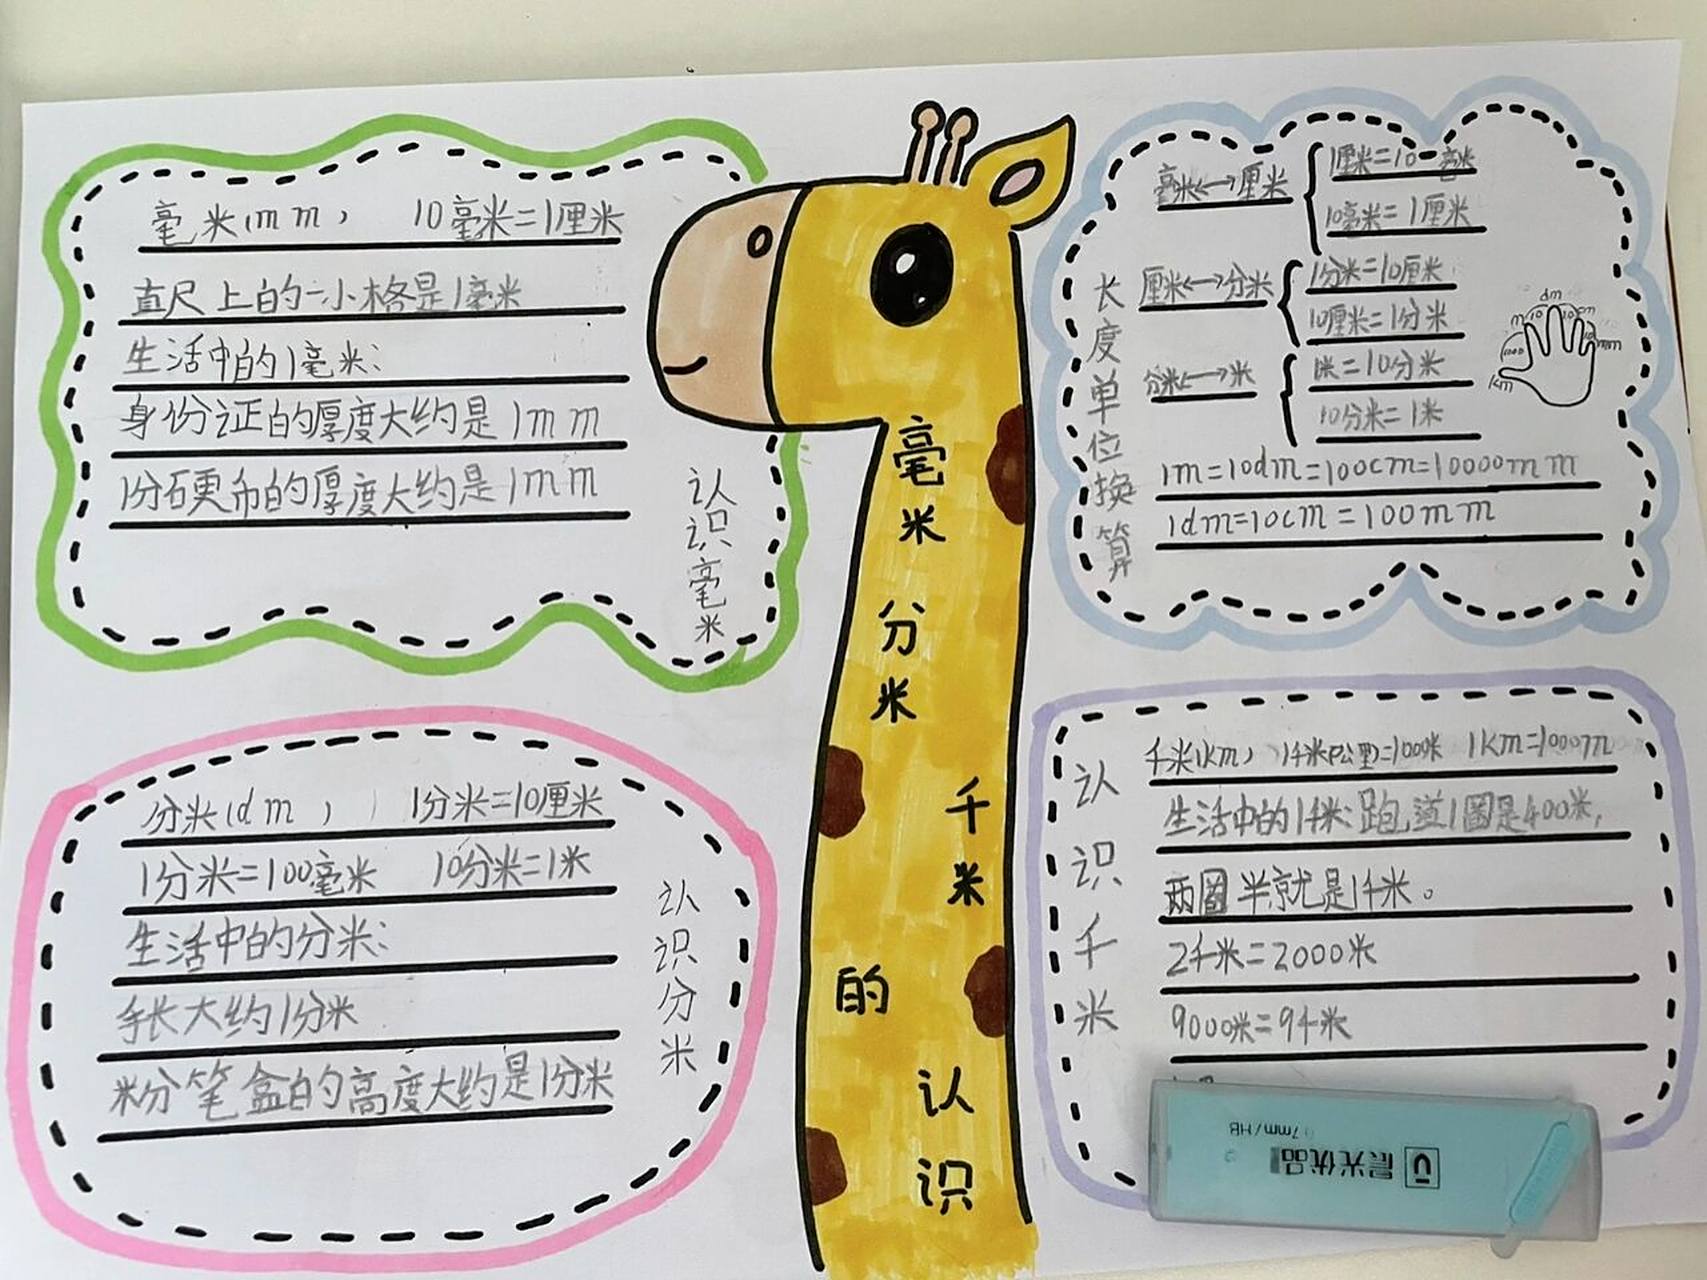 毫米(mm) 10毫米=1厘米
直尺上的一小格是1毫米
生活中的1毫米:
身份证的厚度大约是1mm
1分硬币的厚度大约是1mm
认识毫米
分米(dm) 1分米=10厘米
1分米=100毫米 10分米=1米
生活中的分米:
手长大约1分米
粉笔盒的高度大约是1分米
认识分米
毫米分米千米的认识
长度单位换算
毫米⟷厘米
1厘米=10毫米
10毫米=1厘米
厘米⟷分米
1分米=10厘米
10厘米=1分米
分米⟷米
1米=10分米
10分米=1米
km 1000 m 10 dm 10 cm 10 mm
1m=10dm=100cm=10000mm
1dm=10cm=100mm
认识千米
千米(km) 1千米(公里)=1000米 1km=1000m
生活中的1千米:跑道1圈是400米,
两圈半就是1千米。
2千米=2000米
9000米=9千米
晨光优品
0.7mm/HB